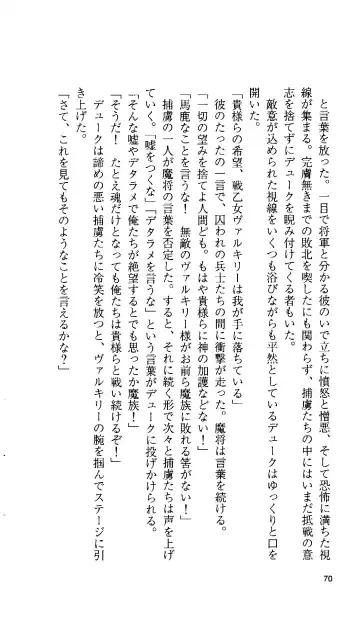 と言葉を放った。一目で将軍と分かる彼のいで立ちに憤怒と憎悪、そして恐怖に満ちた視
線が集まる。完膚無きまでの敗北を喫したにも関わらず、捕虜たちの中にはいまだ抵戦の意
志を捨てずにデュークを睨み付けてくる者もいた。
敵意が込められた視線をいくつも浴びながらも平然としているデュークはゆっくりと口を
開いた。
「貴様らの希望、戦乙女ヴァルキリーは我が手に落ちている」
彼のたったの一言で、囚われの兵士たちの間に衝撃が走った。魔将は言葉を続ける。
「一切の望みを捨てよ人間ども。もはや貴様らに神の加護などない！」
「馬鹿なことを言うな！　無敵のヴァルキリー様がお前ら魔族に敗れる筈がない！」
捕虜の一人が魔将の言葉を否定した。すると、それに続く形で次々と捕虜たちは声を上げ
ていく。「嘘をつくな」「デタラメを言うな」という言葉がデュークに投げかけられる。
「そんな嘘やデタラメで俺たちが絶望するとでも思ったか魔族！」
「そうだ！　たとえ魂だけとなっても俺たちは貴様らと戦い続けるぞ！」
デュークは諦めの悪い捕虜たちに冷笑を放つと、ヴァルキリーの腕を掴んでステージに引
き上げた。
「さて、これを見てもそのようなことを言えるかな？」
70